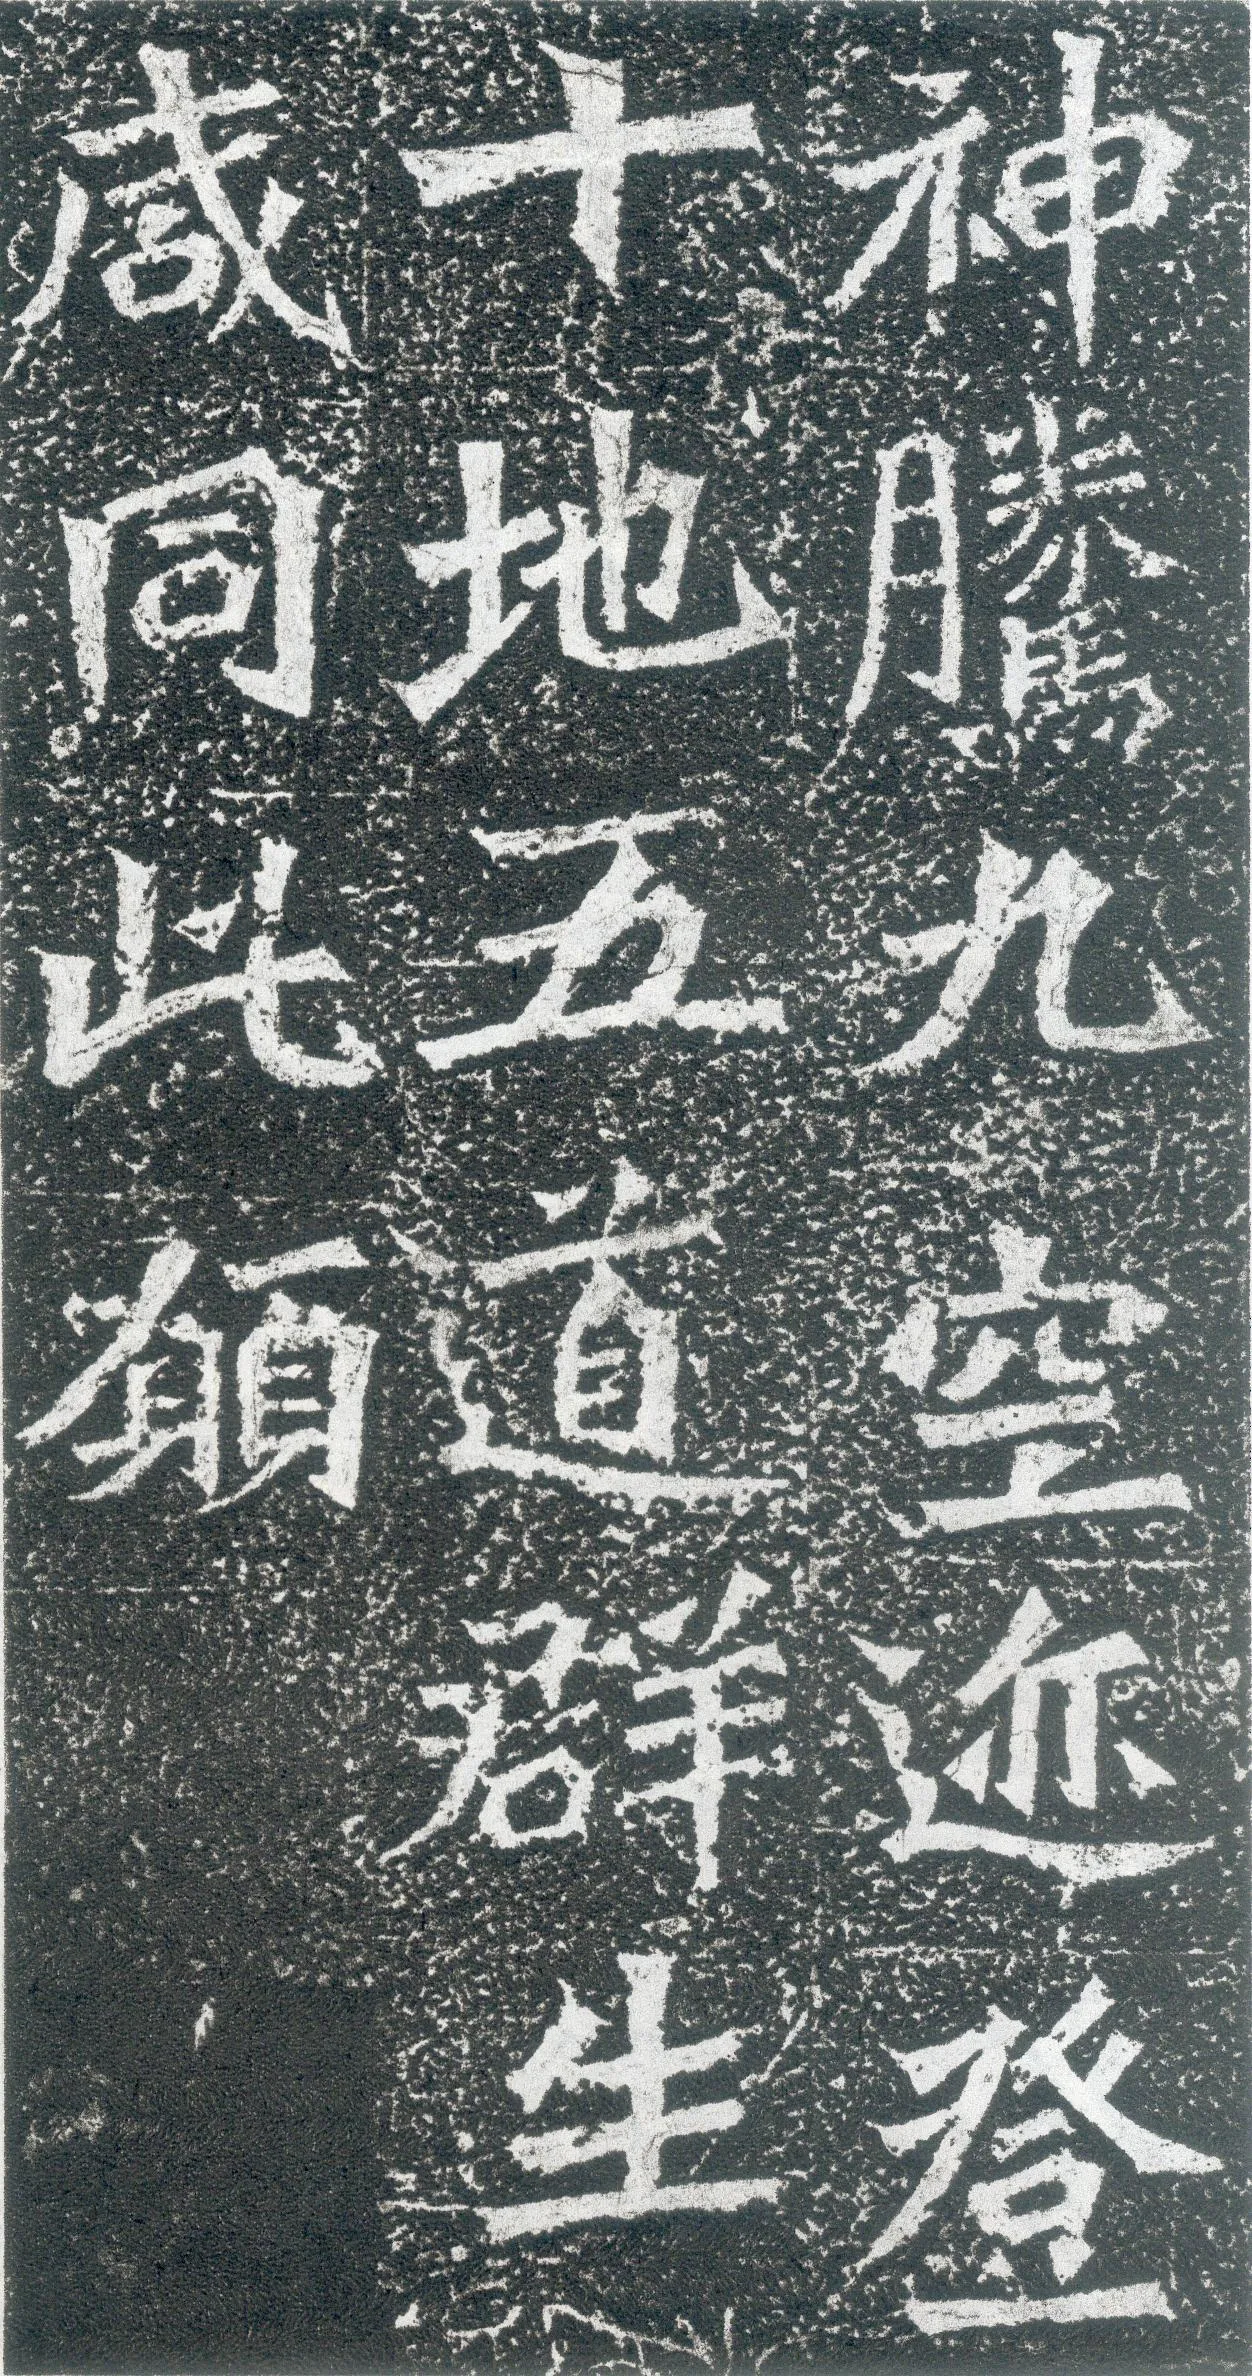 神騰九空迹登
十地五道群生
咸同此願